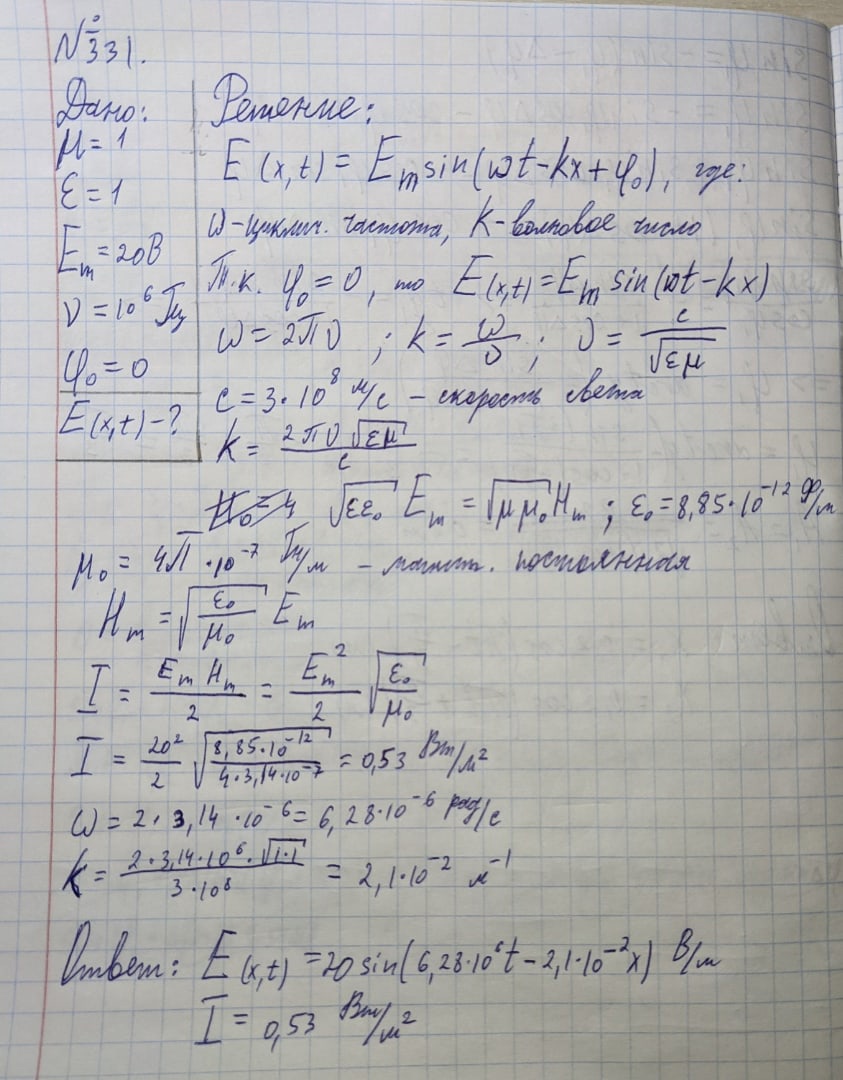 №331.
Дано:
μ = 1
ε = 1
E_m = 20В
ν = 10^6 Гц
φ_0 = 0
E(x,t) - ?
Решение:
E(x,t) = E_m sin(ωt - kx + φ_0), где:
ω - циклич. частота, K - волновое число
Т.к. φ_0 = 0, то E(x,t) = E_m sin(ωt - kx)
ω = 2πν ; k = ω/υ ; υ = c/√(εμ)
c = 3·10^8 м/с - скорость света
k = 2πν√(εμ)/c
√(εε_0) E_m = √(μμ_0) H_m ; ε_0 = 8,85·10^-12 Ф/м
μ_0 = 4π·10^-7 Гн/м - магнит. постоянная
H_m = √(ε_0/μ_0) E_m
I = E_m H_m/2 = E_m^2/2 √(ε_0/μ_0)
I = 20^2/2 √(8,85·10^-12/4·3,14·10^-7) = 0,53 Вт/м^2
ω = 2·3,14·10^-6 = 6,28·10^-6 рад/с
k = 2·3,14·10^6·√(1·1)/3·10^8 = 2,1·10^-2 м^-1
Ответ: E(x,t) = 20 sin(6,28·10^6 t - 2,1·10^-2 x) В/м
I = 0,53 Вт/м^2